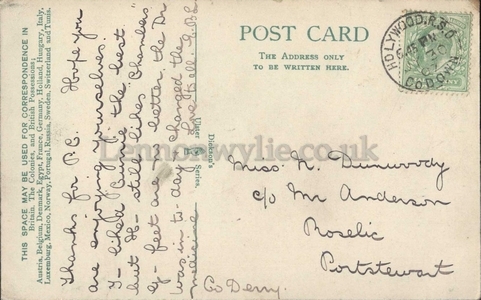 THIS SPACE MAY BE USED FOR CORRESPONDENCE IN
Britain, The Colonies, and British Possessions;
Austria, Belgium, Denmark, Egypt, France, Germany, Holland, Hungary, Italy,
Luxemburg, Mexico, Norway, Portugal, Russia, Sweden, Switzerland and Tunis.
Thanks for P.C. Hope you
are enjoying yourselves.
I liked "Punie" the best
but H- still likes Charles
G- feet are better, the Dr
was in to-day & changed the
medicine Love to all. A.B.
Ulster Series.
POST CARD
THE ADDRESS ONLY
TO BE WRITTEN HERE.
HOLYWOOD, R.S.O.
CO. DOWN
Miss. N. Dunwoody
c/o Mr Anderson
Roselic
Portstewart
Co Derry.
Lennonwylie.co.uk